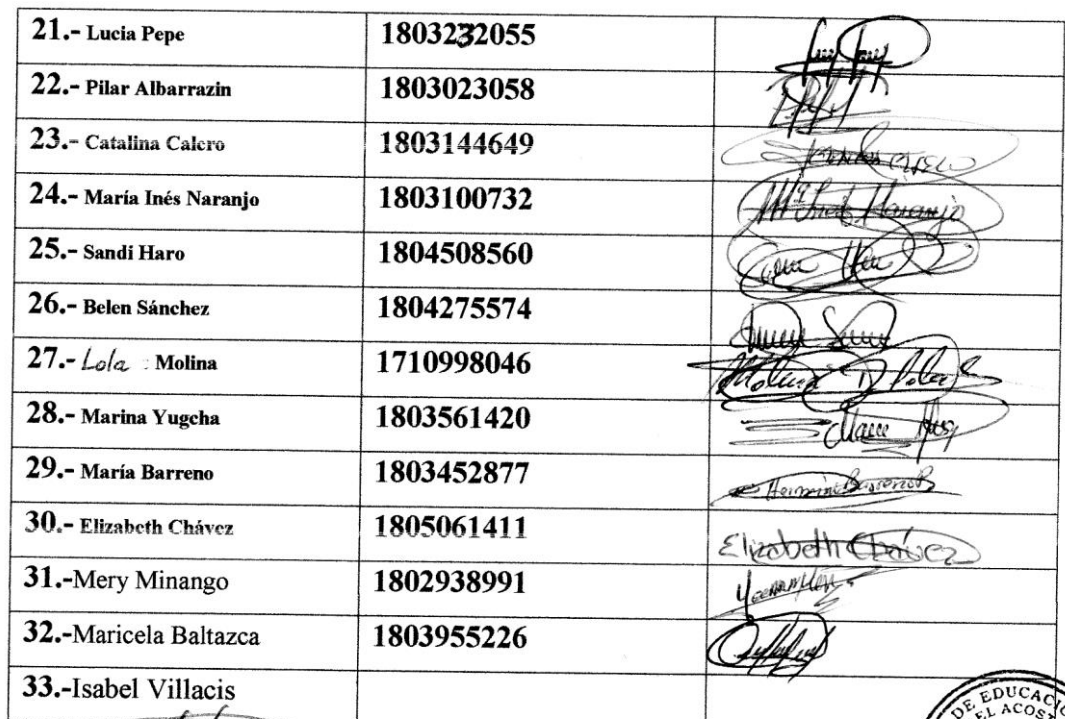 21.- Lucia Pepe 1803232055
22.- Pilar Albarrazin 1803023058
23.- Catalina Calero 1803144649
24.- María Inés Naranjo 1803100732
Mª Inés Naranjo
25.- Sandi Haro 1804508560
26.- Belen Sánchez 1804275574
27.- Lola Molina 1710998046
Molina Lola
28.- Marina Yugcha 1803561420
29.- María Barreno 1803452877
30.- Elizabeth Chávez 1805061411
Elizabeth Chávez
31.-Mery Minango 1802938991
32.-Maricela Baltazca 1803955226
33.-Isabel Villacis
DE EDUCACIO
EL ACOST